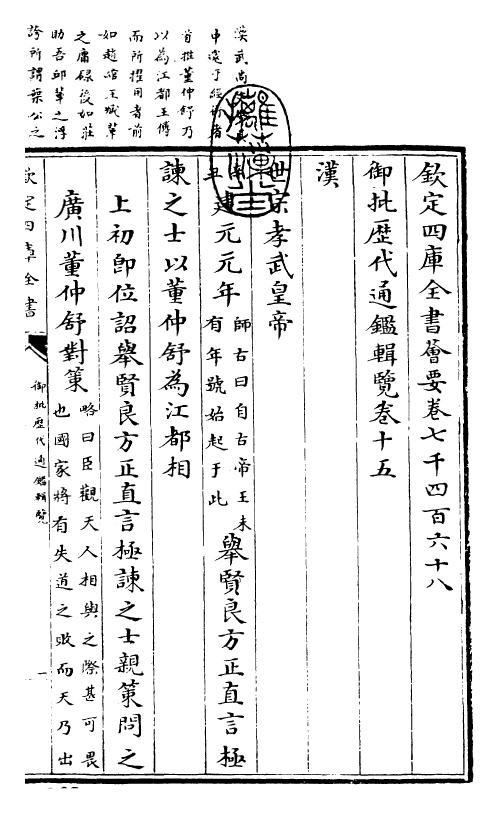 漢武尚
于經術者
首推董仲舒乃
以為江都王傅
而所擢用者前
如趙綰王臧輩
之庸碌後如莊
助吾邱輩之浮
誇所謂葉公之
欽定四庫全書薈要卷七千四百六十八
御批歷代通鑑輯覽卷十五
漢
世宗孝武皇帝
丑建元元年師古曰自古帝王未有年號始起于此舉賢良方正直言極
諫之士以董仲舒為江都相
上初即位詔舉賢良方正直言極諫之士親策問之
廣川董仲舒對策略曰臣觀天人相與之際甚可畏也國家將有失道之敗而天乃出
欽定四庫全書
御批歷代通鑑輯覽
一